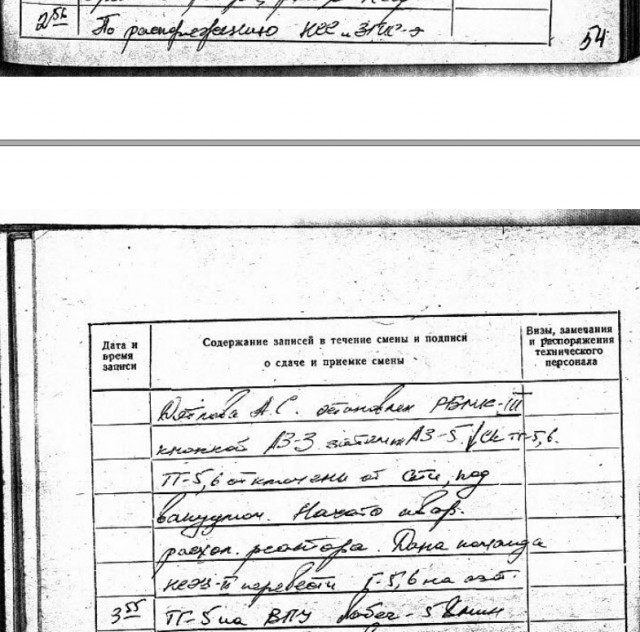 2⁵⁶ По распоряжению НСС и ЗГИС-э
54
Дата и время записи
Содержание записей в течение смены и подписи о сдаче и приемке смены
Визы, замечания и распоряжения технического персонала
Дятлова А.С. остановлен РБМК-III
кнопкой АЗ-3 затем АЗ-5. СК ТГ-5,6.
ТГ-5,6 отключены от сети, под
вакуумом. Начато авар.
расхол. реактора. Дана команда
перевести Т-5,6 на
3⁵⁵ ТГ-5 на ВПУ выбег - 58 мин